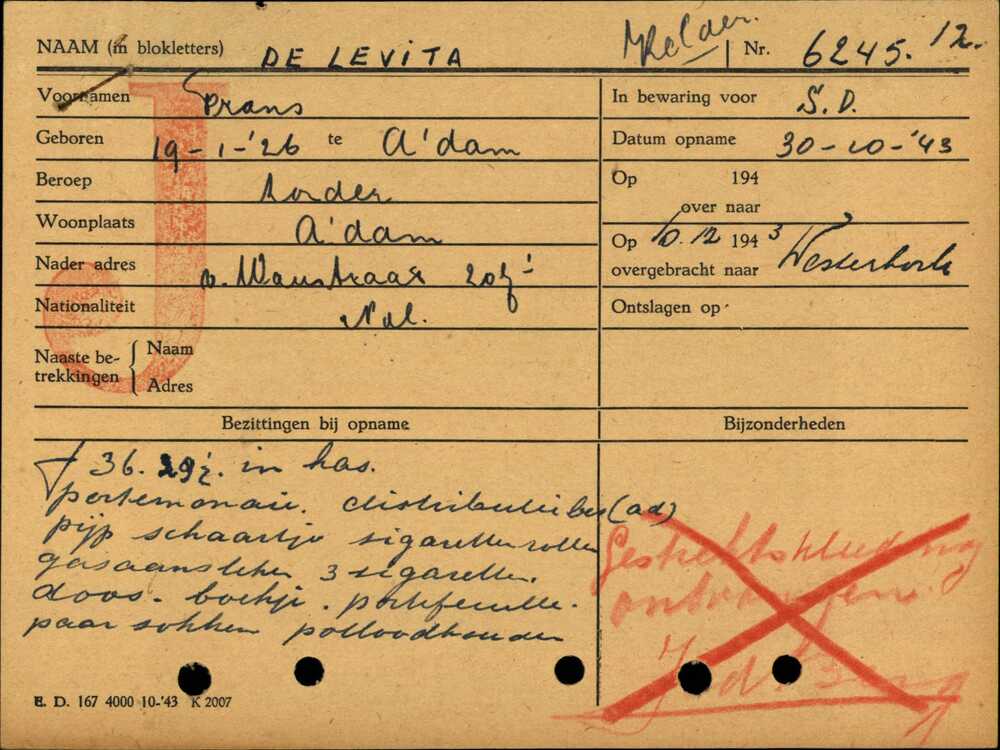 NAAM (in blokletters) DE LEVITA Nr. 6245. 12.
Voornamen Frans
In bewaring voor S.D.
Geboren 19-1-'26 te A'dam
Datum opname 30-10-'43
Beroep
Op 194
over naar
Woonplaats A'dam
Op 10.12 1943
overgebracht naar Westerbork
Nader adres
Nationaliteit Ned.
Ontslagen op
Naaste betrekkingen
Naam
Adres
J
Bezittingen bij opname
Bijzonderheden
f 36.29½. in kas.
portemonaie. distributiebes (ad)
pijp schaartje sigaretten
gasaansteker 3 sigaretten.
doos. boekje. portefeuille.
paar sokken potloodhouder
ontvangen
E. D. 167 4000 10-'43 K 2007